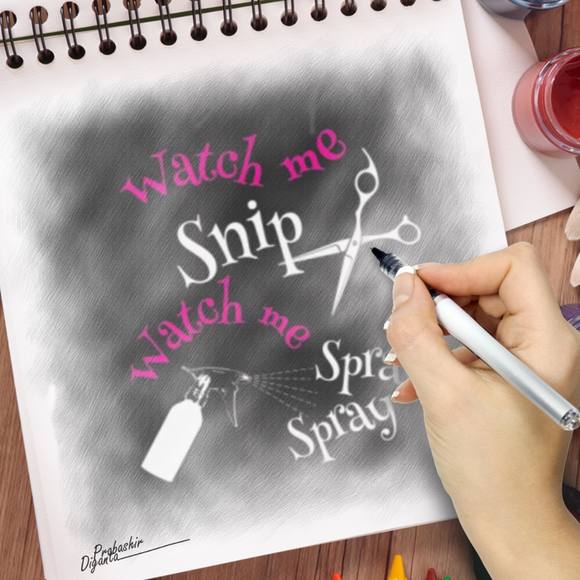 Watch me
Snip
Watch me
Spra
Spray
Probashir
Diganta